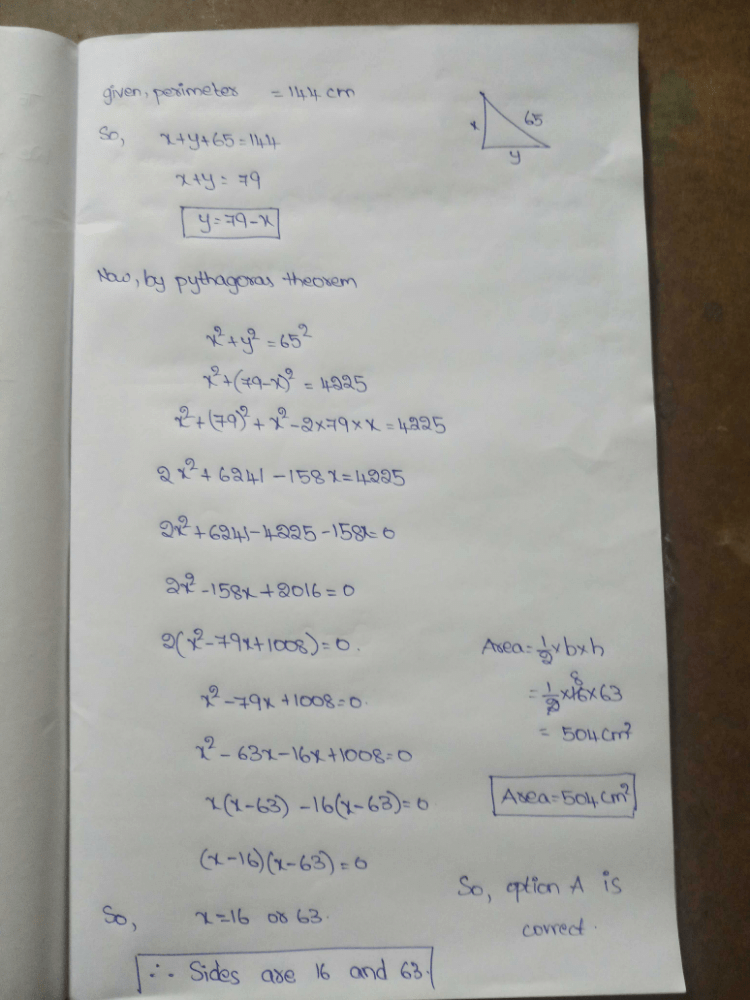 given, perimeter = 144 cm
So, x+y+65=144
x+y= 79
y=79-x
x
65
y
Now, by pythagoras theorem
x²+y²=65²
x²+(79-x)²=4225
x²+(79)²+x²-2×79×x=4225
2x²+6241-158x=4225
2x²+6241-4225-158x=0
2x²-158x+2016=0
2(x²-79x+1008)=0.
x²-79x+1008=0.
x²-63x-16x+1008=0
x(x-63)-16(x-63)=0
(x-16)(x-63)=0
So, x=16 or 63.
∴ Sides are 16 and 63.
Area=1/2×b×h
8
=1/2×16×63
= 504cm²
Area=504cm²
So, option A is
correct.